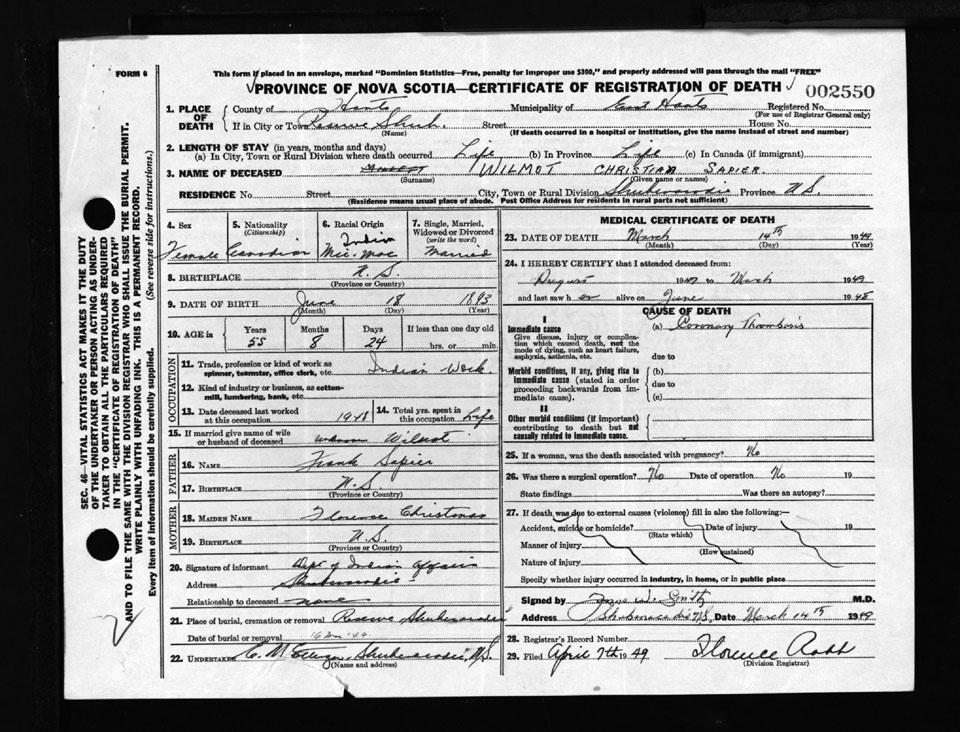 FORM 6
This form if placed in an envelope, marked "Dominion Statistics—Free, penalty for improper use $300," and properly addressed will pass through the mail "FREE"
PROVINCE OF NOVA SCOTIA—CERTIFICATE OF REGISTRATION OF DEATH 002550
1. PLACE OF DEATH
County of Hants Municipality of East Hants Registered No.
(For use of Registrar General only)
If in City or Town Reserve Shub. Street House No.
(Name) (If death occurred in a hospital or institution, give the name instead of street and number)
2. LENGTH OF STAY (in years, months and days)
(a) In City, Town or Rural Division where death occurred Life (b) In Province Life (c) In Canada (if immigrant)
3. NAME OF DECEASED WILMOT CHRISTIAN SAPIER
(Surname) (Given name or names)
RESIDENCE No. Street City, Town or Rural Division Shubenacadie Province N S
(Residence means usual place of abode. Post Office Address for residents in rural parts not sufficient)
4. Sex
Female
5. Nationality
(Citizenship)
Canadian
6. Racial Origin
Indian
Mic. Mac
7. Single, Married, Widowed or Divorced
(write the word)
Married
8. BIRTHPLACE N. S.
(Province or Country)
9. DATE OF BIRTH June 18 1893
(Month) (Day) (Year)
10. AGE in Years Months Days If less than one day old
55 8 24 hrs. or min.
OCCUPATION
11. Trade, profession or kind of work as spinner, teamster, office clerk, etc. Indian Work.
12. Kind of industry or business, as cotton-mill, lumbering, bank, etc.
13. Date deceased last worked at this occupation 1948
14. Total yrs. spent in this occupation Life
15. If married give name of wife or husband of deceased unknown Wilmot
FATHER
16. NAME Frank Sapier
17. BIRTHPLACE N. S.
(Province or Country)
MOTHER
18. MAIDEN NAME Florence Christmas
19. BIRTHPLACE N. S.
(Province or Country)
20. Signature of informant Dept of Indian Affairs
Address Shubenacadie
Relationship to deceased none
21. Place of burial, cremation or removal Reserve Shubenacadie
Date of burial or removal
22. UNDERTAKER Shubenacadie, N.S.
(Name and address)
MEDICAL CERTIFICATE OF DEATH
23. DATE OF DEATH March 14th 1949
(Month) (Day) (Year)
24. I HEREBY CERTIFY that I attended deceased from:
August 1947 to March 1949
and last saw h er alive on June 1948
CAUSE OF DEATH
I
Immediate cause
Give disease, injury or complication which caused death, not the mode of dying, such as heart failure, asphyxia, asthenia, etc.
(a) Coronary Thombosis
due to
Morbid conditions, if any, giving rise to immediate cause (stated in order proceeding backwards from immediate cause).
(b)
due to
(c)
II
Other morbid conditions (if important) contributing to death but not causally related to immediate cause.
25. If a woman, was the death associated with pregnancy? No
26. Was there a surgical operation? No Date of operation No 19
State findings Was there an autopsy?
27. If death was due to external causes (violence) fill in also the following:—
Accident, suicide or homicide? Date of injury 19
(State which)
Manner of injury
(How sustained)
Nature of injury
Specify whether injury occurred in industry, in home, or in public place
Signed by Smith M.D.
Address Shubenacadie N.S. Date March 14th 1949
28. Registrar's Record Number
29. Filed April 7th 1949 Florence Robb
(Division Registrar)
SEC. 46—VITAL STATISTICS ACT MAKES IT THE DUTY
OF THE UNDERTAKER OR PERSON ACTING AS UNDER-
TAKER TO OBTAIN ALL THE PARTICULARS REQUIRED
IN THE "CERTIFICATE OF REGISTRATION OF DEATH"
AND TO FILE THE SAME WITH THE DIVISION REGISTRAR WHO SHALL ISSUE THE BURIAL PERMIT.
WRITE PLAINLY WITH UNFADING INK. THIS IS A PERMANENT RECORD.
Every item of information should be carefully supplied. (See reverse side for instructions.)